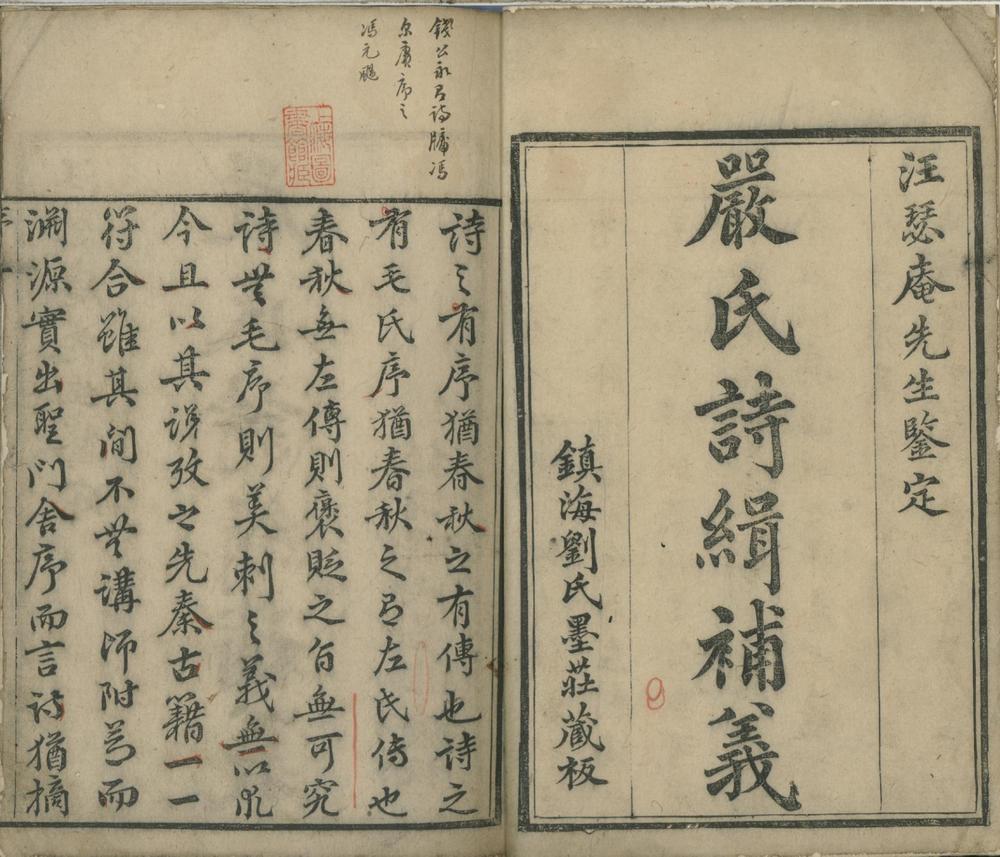 汪瑟庵先生鑒定
嚴氏詩緝補義
鎮海劉氏墨莊藏板
錢公永昌詩牖馮
尔賡序之
馮元颺
上海圖書館藏
詩之有序猶春秋之有傳也詩之
有毛氏序猶春秋之有左氏傳也
春秋無左傳則褒貶之旨無可究
詩無毛序則美刺之義無以見
今且以其說攷之先秦古籍一一
符合雖其間不無講師附益而
溯源實出聖門舍序而言詩猶摘
序 一